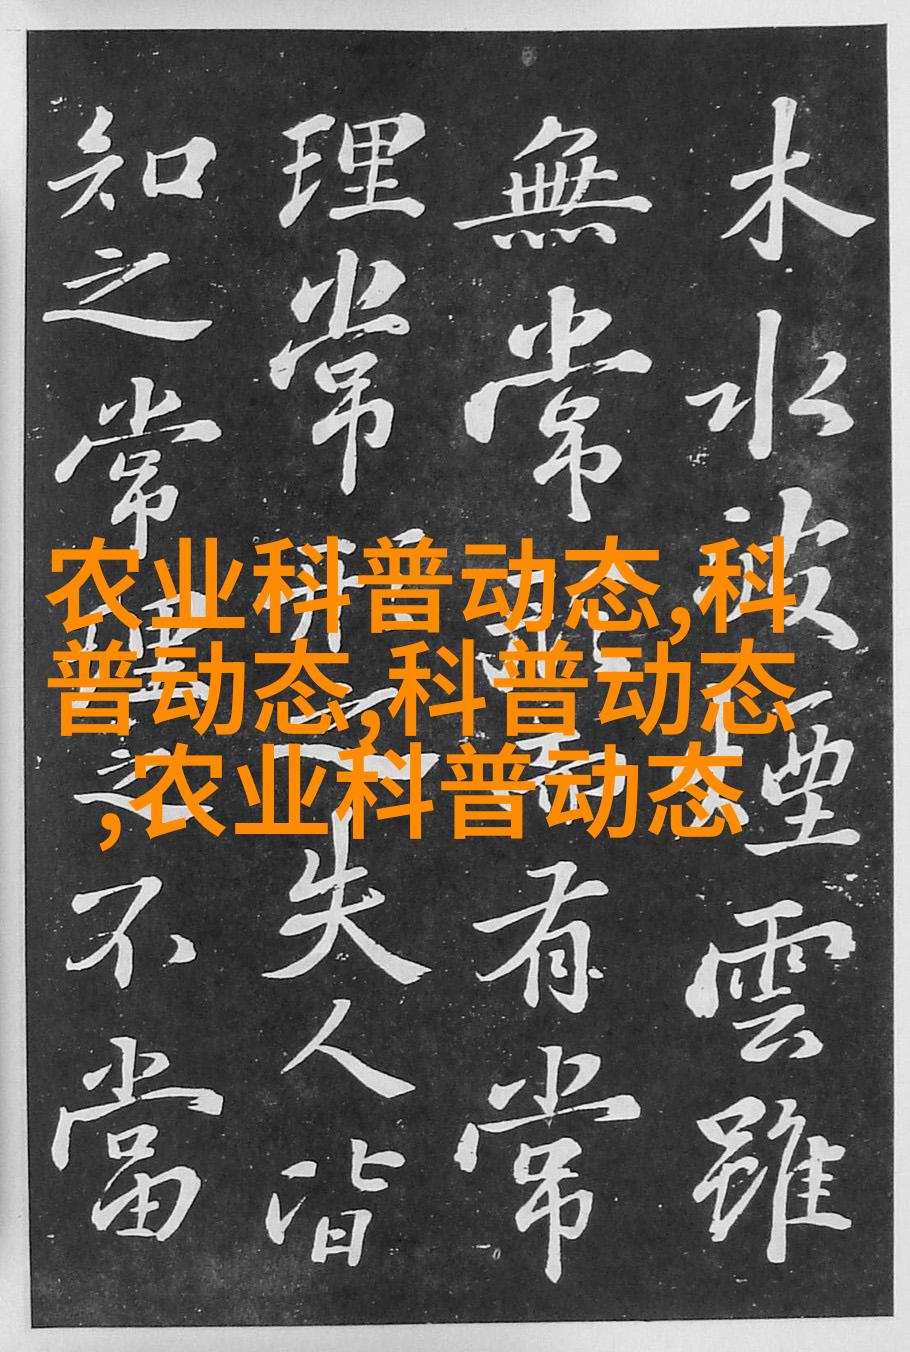 木水波煙雲雖
無常形而有常
理常形之失人皆
知之常理之不當
农业科普动态,科
普动态,科普动态
,农业科普动态